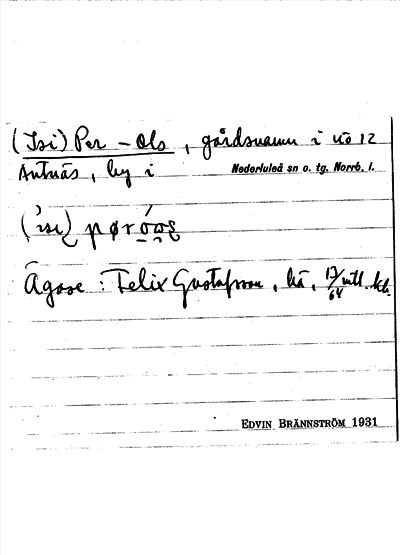 (Isi) Per - Ols, gårdsnamn i n:o 12
Antnäs, by i Nederluleå sn o. tg. Norrb. l.
Ägare: Felix Gustafsson, 17/64 mtl.
EDVIN BRÄNNSTRÖM 1931